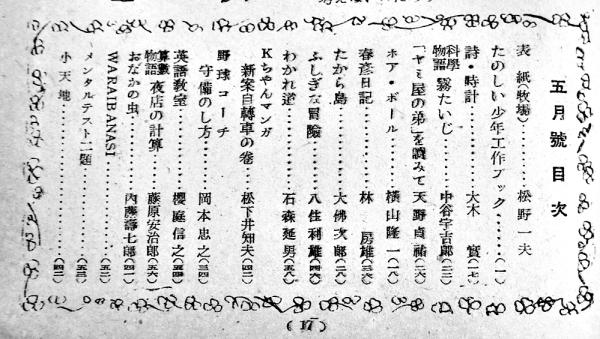 五月號目次
表紙(牧場)……松野一夫
たのしい少年工作ブック……(一)
詩・時計……大木實(一七)
科學物語 霧たいじ……中谷宇吉郎(二二)
「ヤミ屋の弟」を讀みて 天野貞祐(二六)
ホア・ボール……橫山隆一(一八)
春彥日記……林房雄(三六)
たから島……大佛次郎(二八)
ふしぎな冒險……八住利雄(四六)
わかれ道……石森延男(五八)
Kちゃんマンガ
新案自轉車の卷……松下井知夫(四二)
野球コーチ
守備のし方……岡本忠之(三四)
英語教室……櫻庭信之(五四)
算數物語 夜店の計算……藤原安治郎(五六)
おなかの虫……內藤壽七郎(四一)
WARAIBANASI……(五三)
メンタルテスト二題……(五三)
小天地……(四二)
(17)